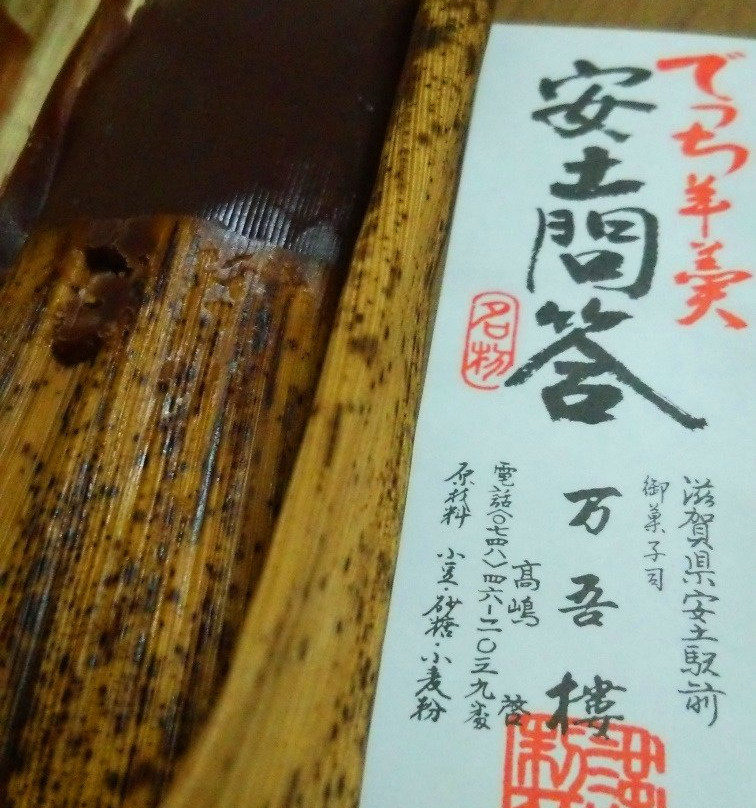 でっち羊羹
安土問答
名物
滋賀県安土駅前
御菓子司
万吾樓
高嶋 啓
電話(〇七四八)四六-二〇三九番
原材料 小豆・砂糖・小麦粉